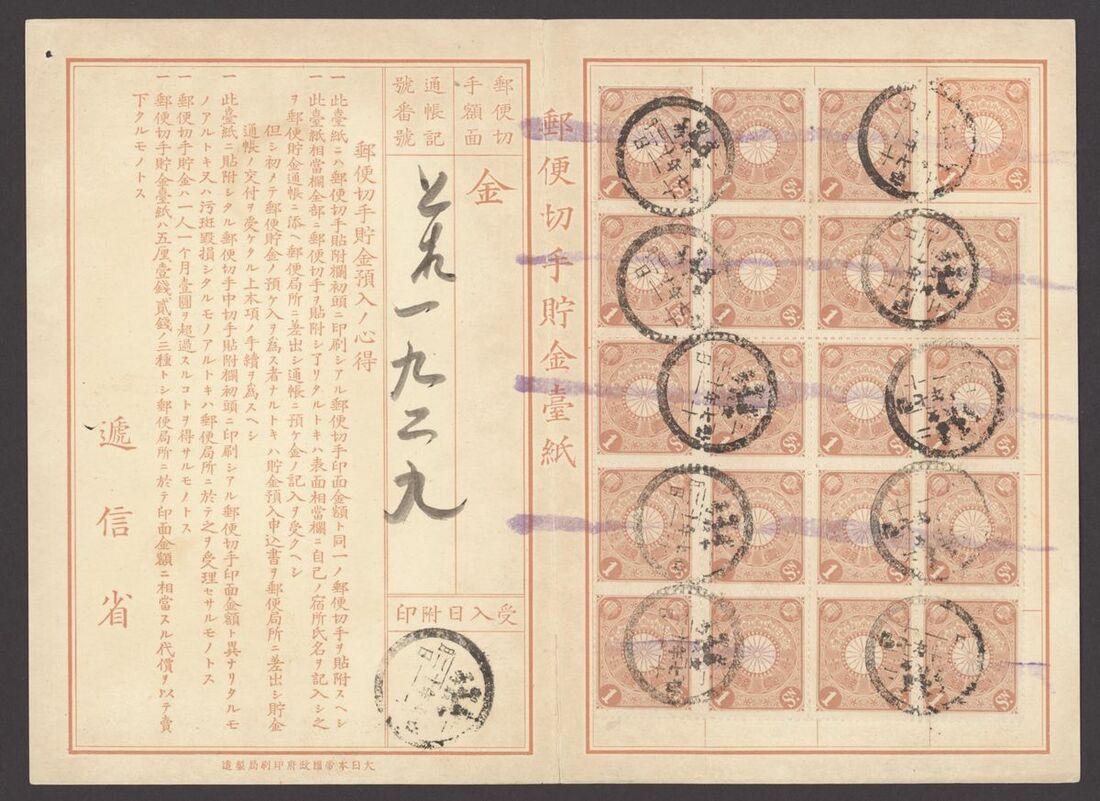 郵便切手貯金臺紙
郵便切手額面
金
通帳記號番號
と九一九二九
受入日附印
郵便切手貯金預入ノ心得
一 此臺紙ニハ郵便切手貼附欄初頭ニ印刷シアル郵便切手印面金額ト同一ノ郵便切手ヲ貼附スヘシ
一 此臺紙相當欄全部ニ郵便切手ヲ貼附シ了リタルトキハ表面相當欄ニ自己ノ宿所氏名ヲ記入シ之
ヲ郵便貯金通帳ニ添ヘ郵便局所ニ差出シ通帳ニ預ケ金ノ記入ヲ受クヘシ
但シ初メテ郵便貯金ノ預ケ入ヲ爲ス者ナルトキハ貯金預入申込書ヲ郵便局所ニ差出シ貯金
通帳ノ交付ヲ受ケタル上本項ノ手續ヲ爲スヘシ
一 此臺紙ニ貼附シタル郵便切手中切手貼附欄初頭ニ印刷シアル郵便切手印面金額ト異ナリタルモ
ノアルトキ又ハ污斑毀損シタルモノアルトキハ郵便局所ニ於テ之ヲ受理セサルモノトス
一 郵便切手貯金ハ一人一个月壹圓ヲ超過スルコトヲ得サルモノトス
一 郵便切手貯金臺紙ハ五厘、壹錢、貳錢ノ三種トシ郵便局所ニ於テ印面金額ニ相當スル代價ヲ以テ賣
下クルモノトス
遞信省
大日本帝國政府印刷局製造
1 Sn 1 Sn 1 Sn 1 Sn
1 Sn 1 Sn 1 Sn 1 Sn
1 Sn 1 Sn 1 Sn 1 Sn
1 Sn 1 Sn 1 Sn 1 Sn
1 Sn 1 Sn 1 Sn 1 Sn